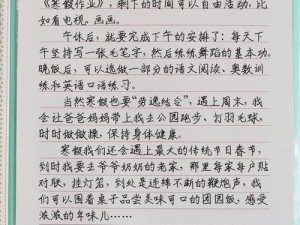 《寒假作业》，剩下的时间可以自由活动，比
如看电视，画画。
午休后，就要完成下午的安排了：每天下
午坚持写一张毛笔字，然后练练舞蹈的基本功。
晚饭后，可以选做一部分的语文阅读、奥数训
练和英语口语练习。
当然寒假也要“劳逸结合”，遇上周末，我
会让爸爸妈妈带上我去公园跑步、打羽毛球，
时时做做操，保持身体健康。
寒假我们还会遇上最大的传统节日春节，
到时我要去爷爷奶奶的老家，那里每家每户贴
对联，挂灯笼，到处是连绵不断的鞭炮声，我
们可以围着桌子品尝美味可口的团圆饭，感受
浓浓的年味儿……